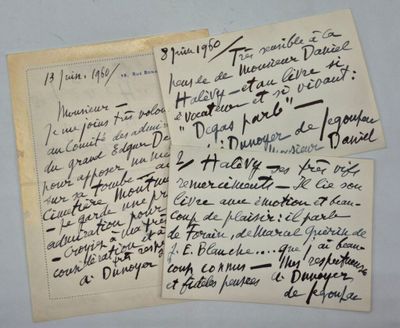 13 Juin. 1960/
18, Rue
Monsieur —
Je me joins très volon
au Comité des admir
du grand Edgar De
pour apposer un mé
sur sa tombe — a
Cimetière Montm
— Je garde une pr
admiration pour
— croyez — ma tr
considération et à
très resp
à Dunoyer
8 Juin 1960/
Très sensible à la
pensée de Monsieur Daniel
Halévy — et au livre si
évocateur et si vivant:
"Degas parle" —
: Dunoyer de Segonzac
Monsieur Daniel
Halévy — ses très vifs
remerciments — Il lie son
livre avec émotion et beau-
coup de plaisir: il parle
de Forain, de Marcel Guérin de
J. E. Blanche .... que j'ai beau
coup connus — Mes respectueuses
et fidèles pensées à Dunoyer
de Segonzac